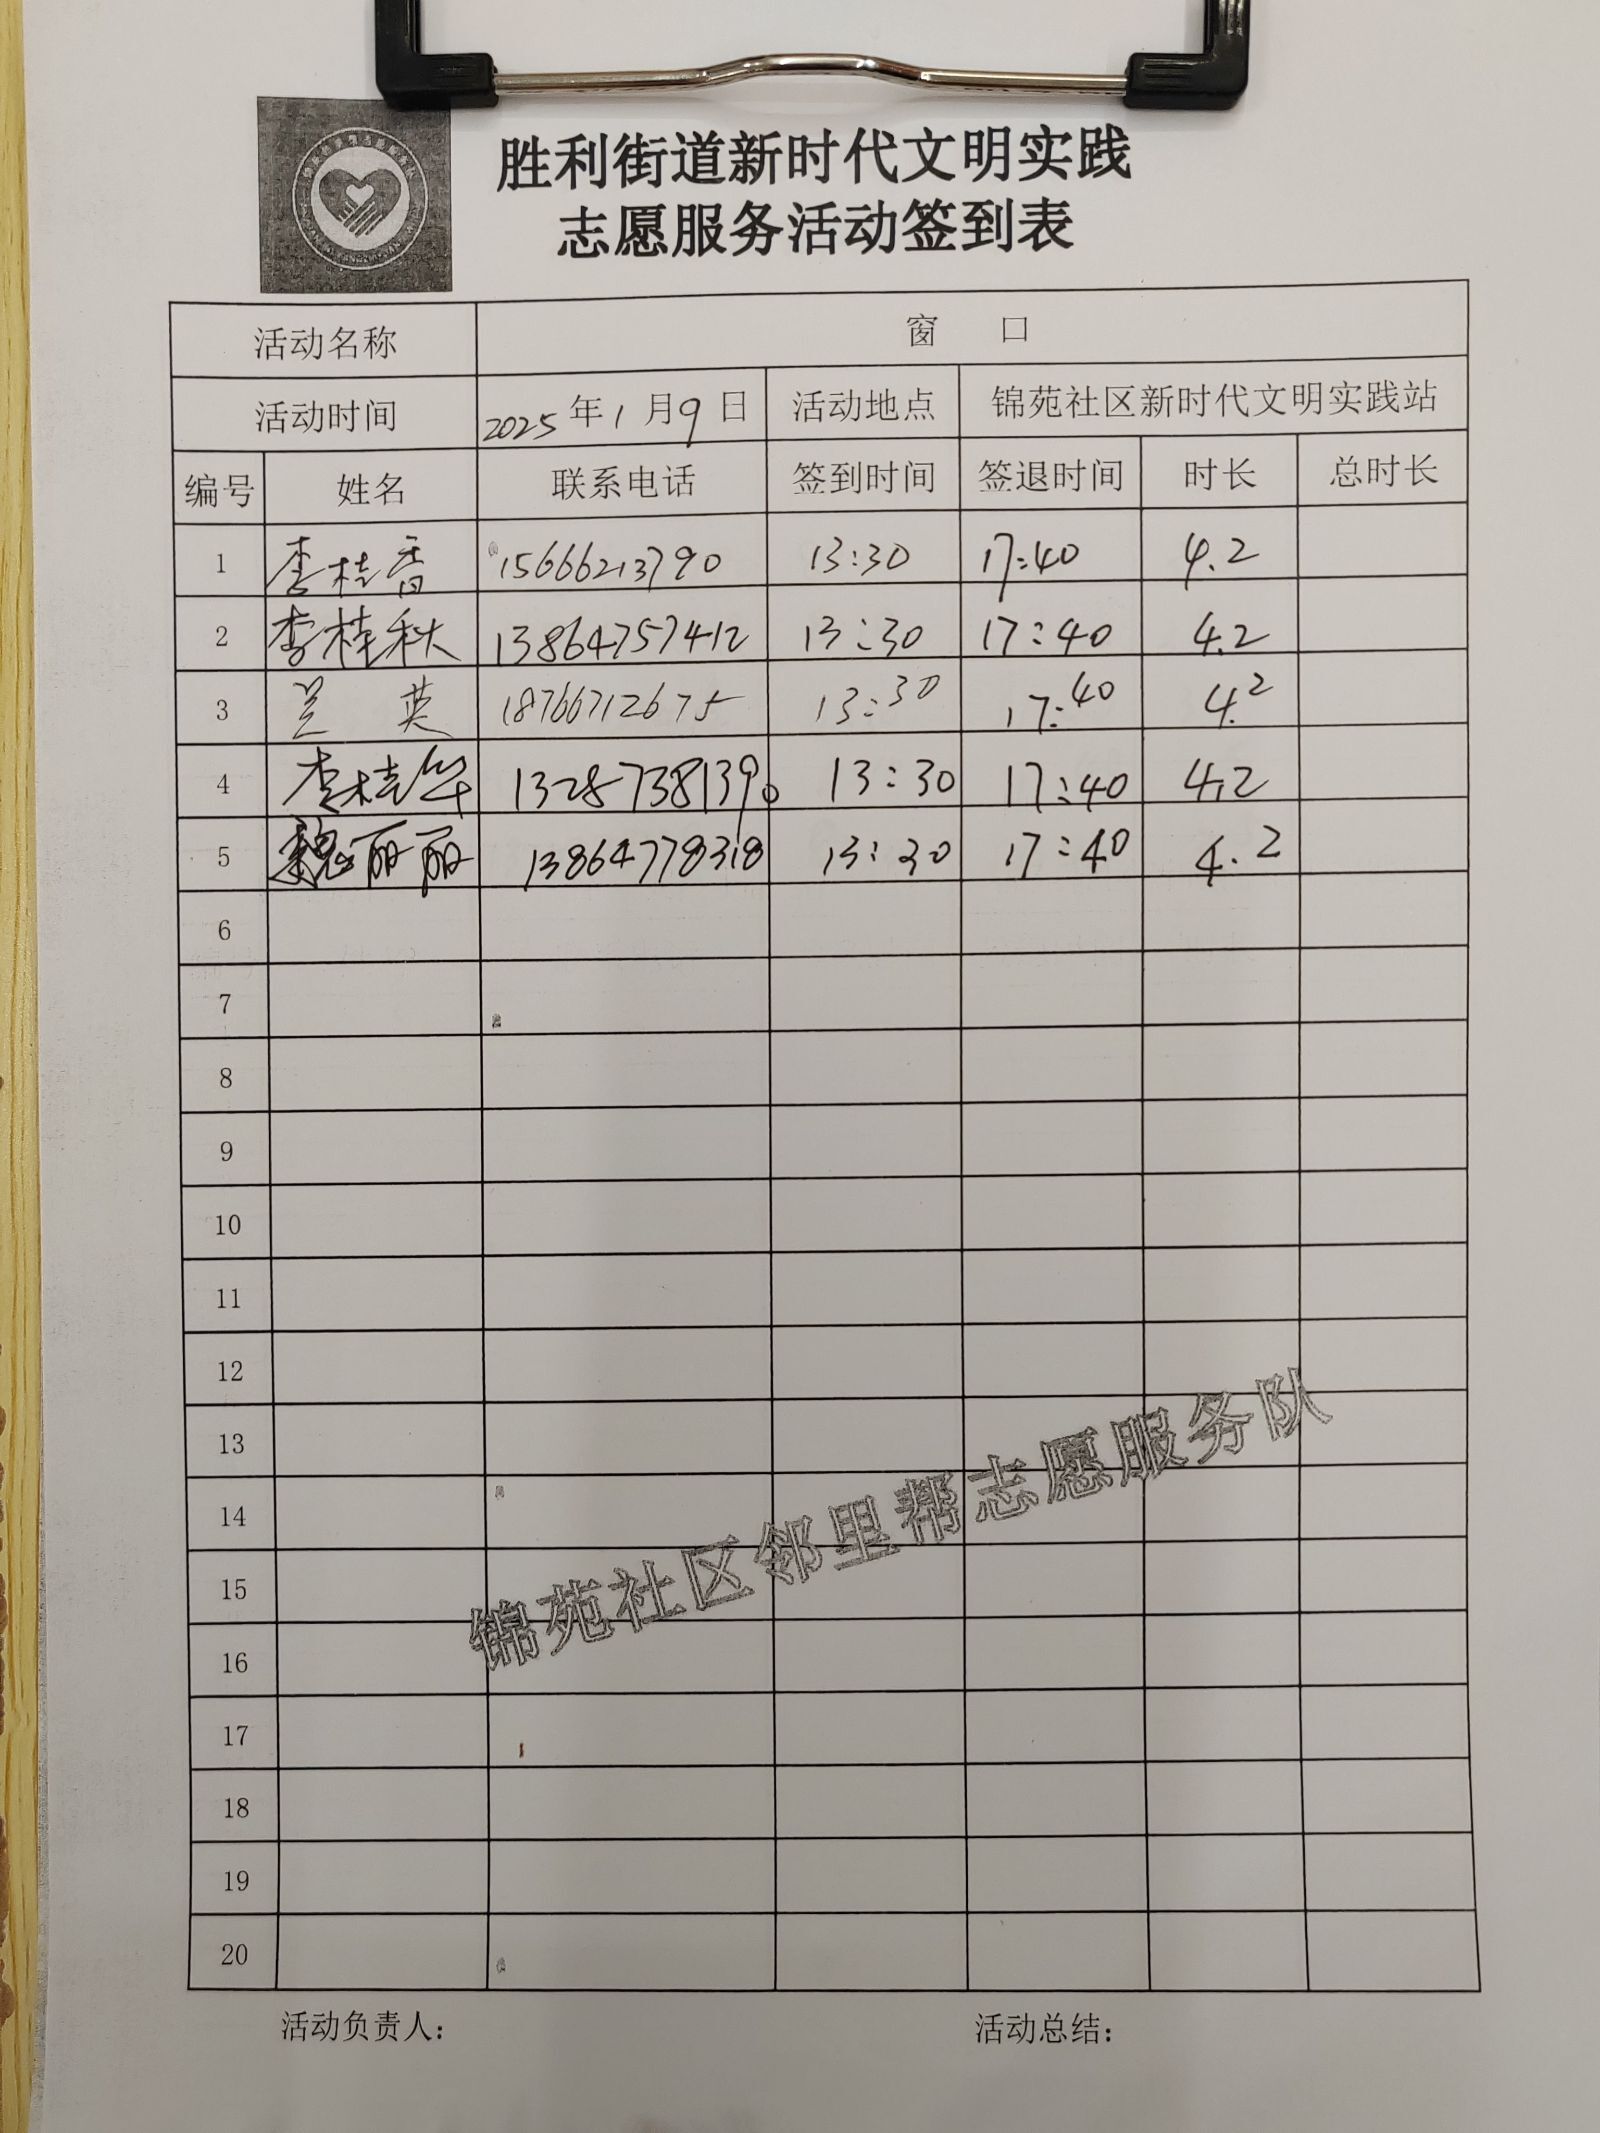 胜利街道新时代文明实践
志愿服务活动签到表
活动名称 窗 口
活动时间 2025年1月9日 活动地点 锦苑社区新时代文明实践站
编号 姓名 联系电话 签到时间 签退时间 时长 总时长
1 李桂香 15666213790 13:30 17:40 4.2
2 李桂秋 13864757412 13:30 17:40 4.2
3 兰英 18766712675 13:30 17:40 4.2
4 李桂华 13287381390 13:30 17:40 4.2
5 魏丽丽 13864778318 13:30 17:40 4.2
6
7
8
9
10
11
12
13
14
15
16
17
18
19
20
锦苑社区邻里帮志愿服务队
活动负责人： 活动总结：